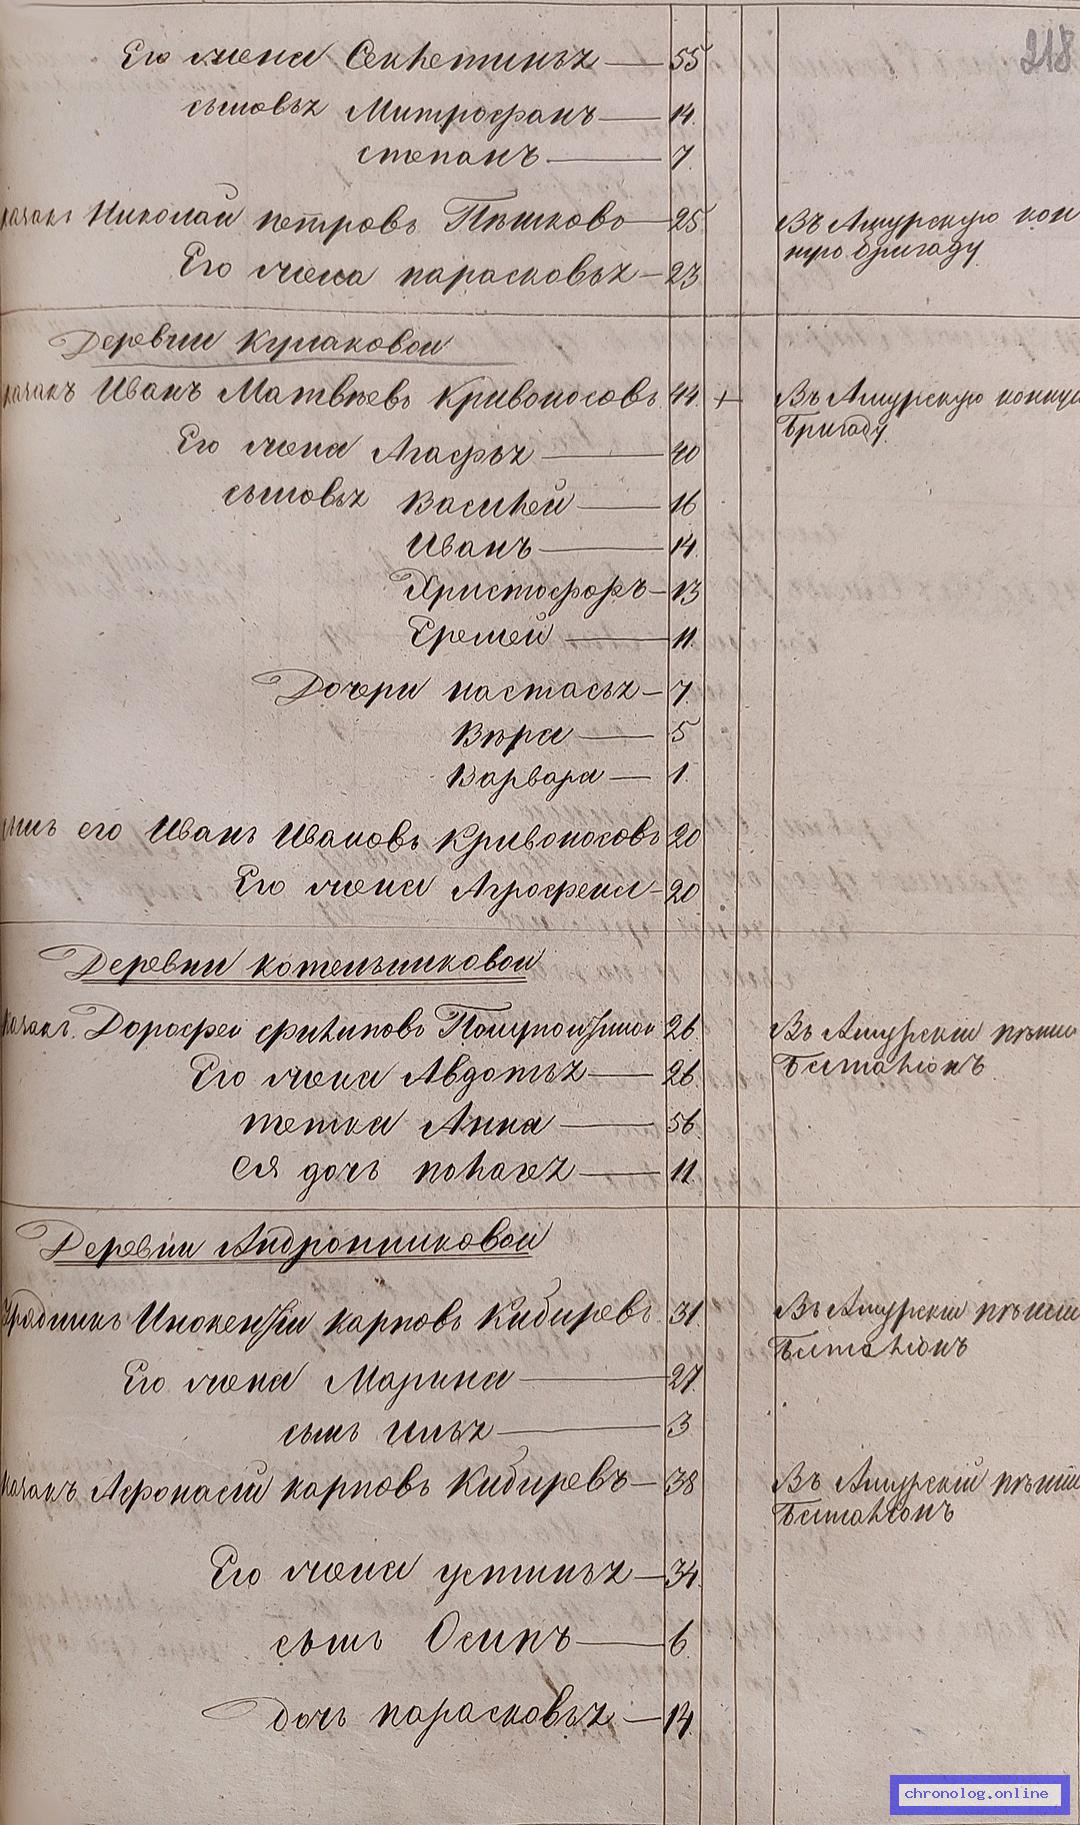 218
Его жена Секлетинья 55
сыновья Митрофанъ 14
степанъ 7
казакъ Николай петровъ Пѣшковъ 25 Въ Амурскую кон
ную бригаду
Его жена парасковья 23
Деревни Кулаковой
казакъ Иванъ Матвѣевъ Кривоносовъ 44 + Въ Амурскую конную
бригаду
Его жена Агафья 40
сыновья Василей 16
Иванъ 14
Христофоръ 13
Еремей 11
Дочери настасья 7
Вѣра 5
Варвара 1
сынъ его Иванъ Ивановъ Кривоносовъ 20
Его жена Агрофена 20
Деревни котельниковой
казакъ Дорофей филиповъ 26 Въ Амурскій пѣшій
баталіонъ
Его жена Авдотья 26
тетка Анна 56
ея дочь полагея 11
Деревни Андронниковой
Урядникъ Инокентій карповъ Кибиревъ 31 Въ Амурскій пѣшій
баталіонъ
Его жена Марина 27
сынъ илья 3
казакъ Афонасій карповъ Кибиревъ 38 Въ Амурскій пѣшій
баталіонъ
Его жена устинья 34
сынъ Осипъ 6
дочь парасковья 14
chronolog.online